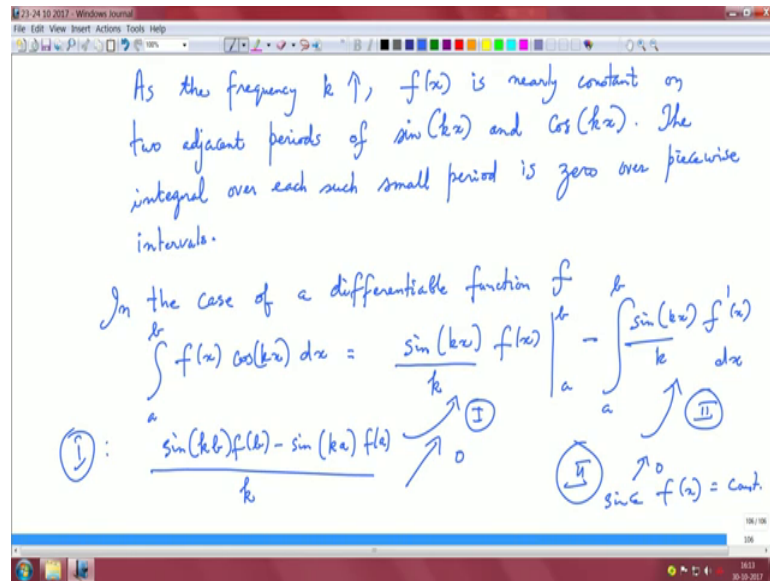 23-24 10 2017 - Windows Journal
File Edit View Insert Actions Tools Help
100%
As the frequency k ↑, f(x) is nearly constant on
two adjacent periods of sin(kx) and cos(kx). The
integral over each such small period is zero over piecewise
intervals.
In the case of a differentiable function f
∫_a^b f(x) cos(kx) dx = sin(kx)/k f(x) |_a^b - ∫_a^b sin(kx)/k f'(x) dx
Ⓘ Ⓘ Ⓘ
Ⓘ : (sin(kb)f(b) - sin(ka) f(a))/k → 0
Ⅱ → 0
since f(x) = const.
106 / 106
106
16:13
30-10-2017